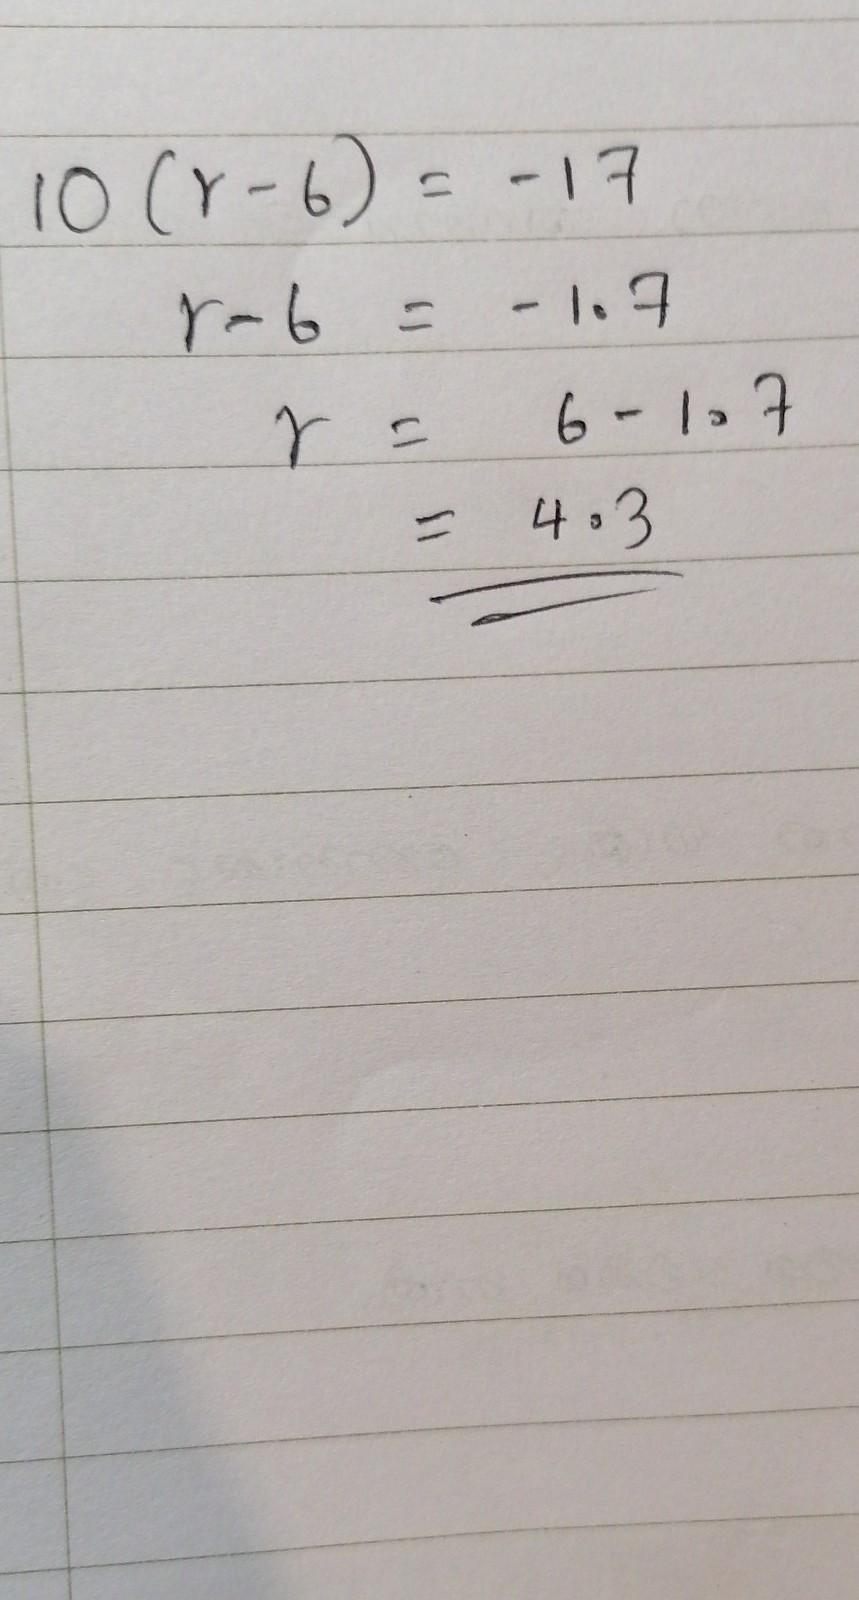 10 (r - 6) = -17
r - 6 = -1.7
r = 6 - 1.7
= 4.3